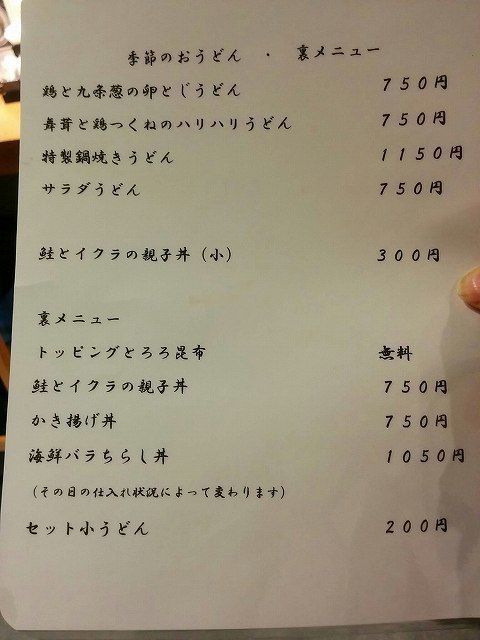 季節のおうどん ・ 裏メニュー
鶏と九条葱の卵とじうどん ７５０円
舞茸と鶏つくねのハリハリうどん ７５０円
特製鍋焼きうどん １１５０円
サラダうどん ７５０円
鮭とイクラの親子丼（小） ３００円
裏メニュー
トッピングとろろ昆布 無料
鮭とイクラの親子丼 ７５０円
かき揚げ丼 ７５０円
海鮮バラちらし丼 １０５０円
（その日の仕入れ状況によって変わります）
セット小うどん ２００円